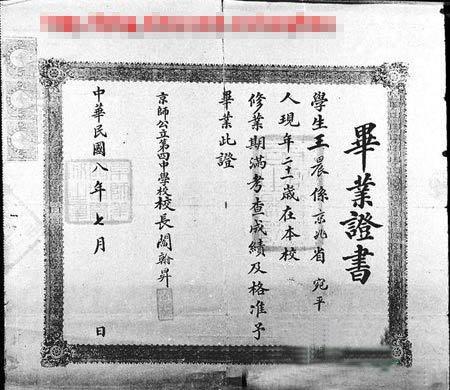 畢業證書
學生王晨係京兆省宛平
人現年二十一歲在本校
修業期滿考查成績及格准予
畢業此證
京師公立第四中學校校長閻翰昇
中華民國八年七月 日